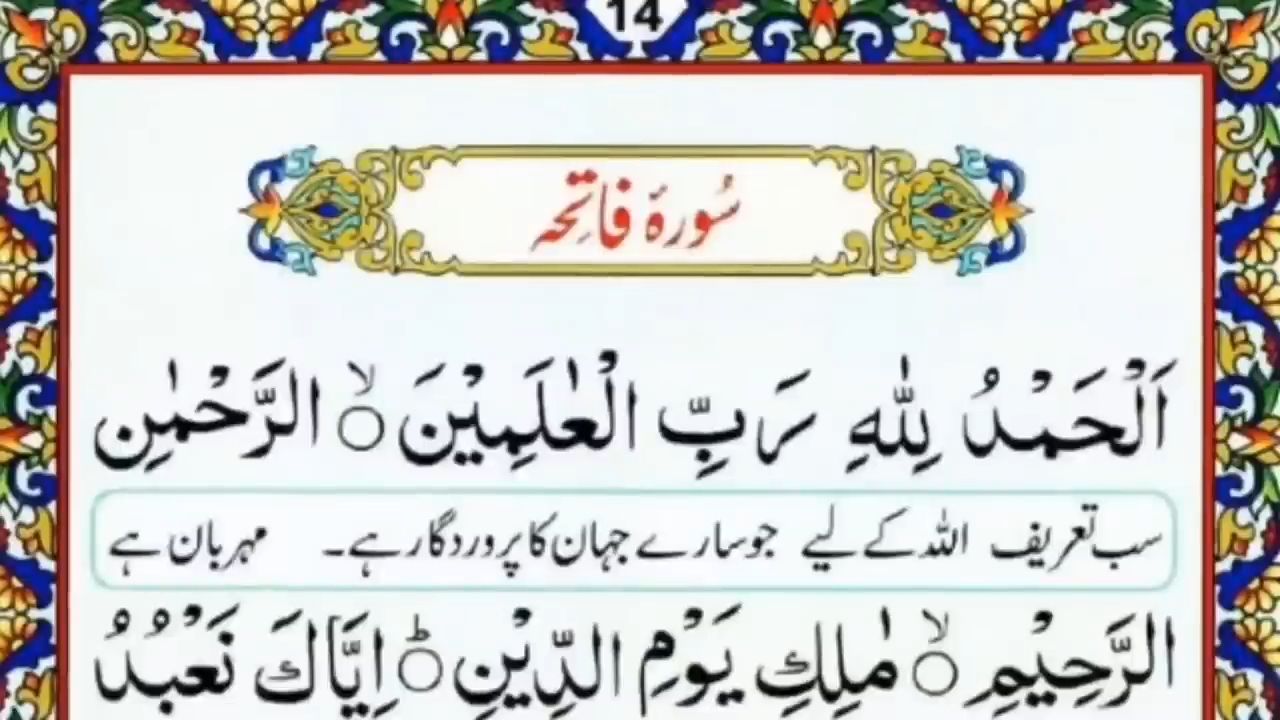 14
سُورۂ فاتِحہ
اَلْحَمْدُ لِلّٰهِ رَبِّ الْعٰلَمِيْنَ ۙ الرَّحْمٰنِ
سب تعریف اللہ کے لیے جو سارے جہان کا پروردگار ہے۔ مہربان ہے
الرَّحِيْمِ ۙ مٰلِكِ يَوْمِ الدِّيْنِ ؕ اِيَّاكَ نَعْبُدُ